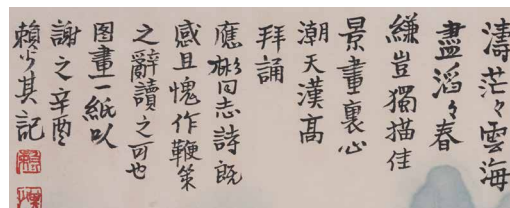 濤茫々雲海
盡滔々春
縑豈獨描佳
景畫裏心
潮天漢高
拜誦
應彬同志詩既
感且愧作鞭策
之辭讀之可也
图畫一紙以
謝之辛酉
賴少其記